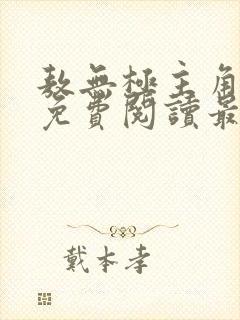 敖無極主角
免費閱讀最
戴本孝